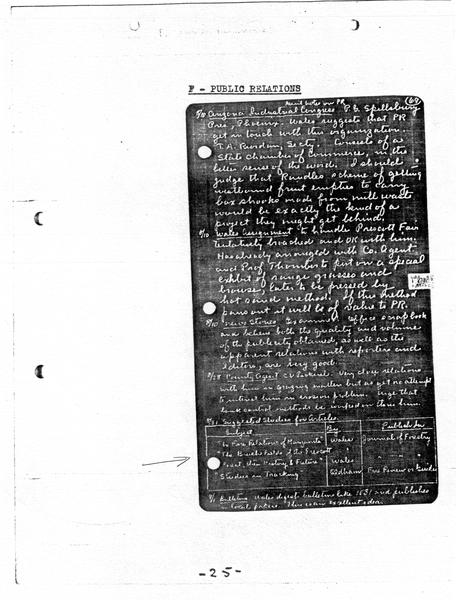 F - PUBLIC RELATIONS
(69)
8/10 Arizona Industrial Congress P.G. Spillsbury
Pres, Phoenix. Wales suggests that PR
get in touch with this organization.
T.A. Riordan, Secty. Consists of a
State Chamber of Commerce, in the
better sense of the word. I should
judge that Rundles scheme of getting
westbound fruit empties to carry
box shooks made from mill waste
would be exactly the kind of a
project they might get behind.
8/10 Wales assignment to handle Prescott Fair
tentatively broached and OK with him.
Has already arranged with Co. Agent
and Prof Thornber to put on a special
exhibit of range grasses and
browse, later to be pressed by
hot sand method. If this method
pans out it will be of value to PR.
8/10 News Stories. Examined office scrapbook
and believe both the quality and volume
of the publicity obtained, as well as the
apparent relations with reporters and
editors, are very good.
County Agent Very close relations
with him on grazing matters but as yet no attempt
to interest him in erosion problem. Urge that
bank control methods be
Suggested Studies for Articles
Subject By Publish In
"Fire Relations of Manzanita" Wales Journal of Forestry
"The Brush Fields of the Prescott
their History & Future" Wales
Studies in Trucking Oldham
Bulletins Wales digests bulletins like 1031 and publishes
in local papers. This is an excellent idea.
-25-